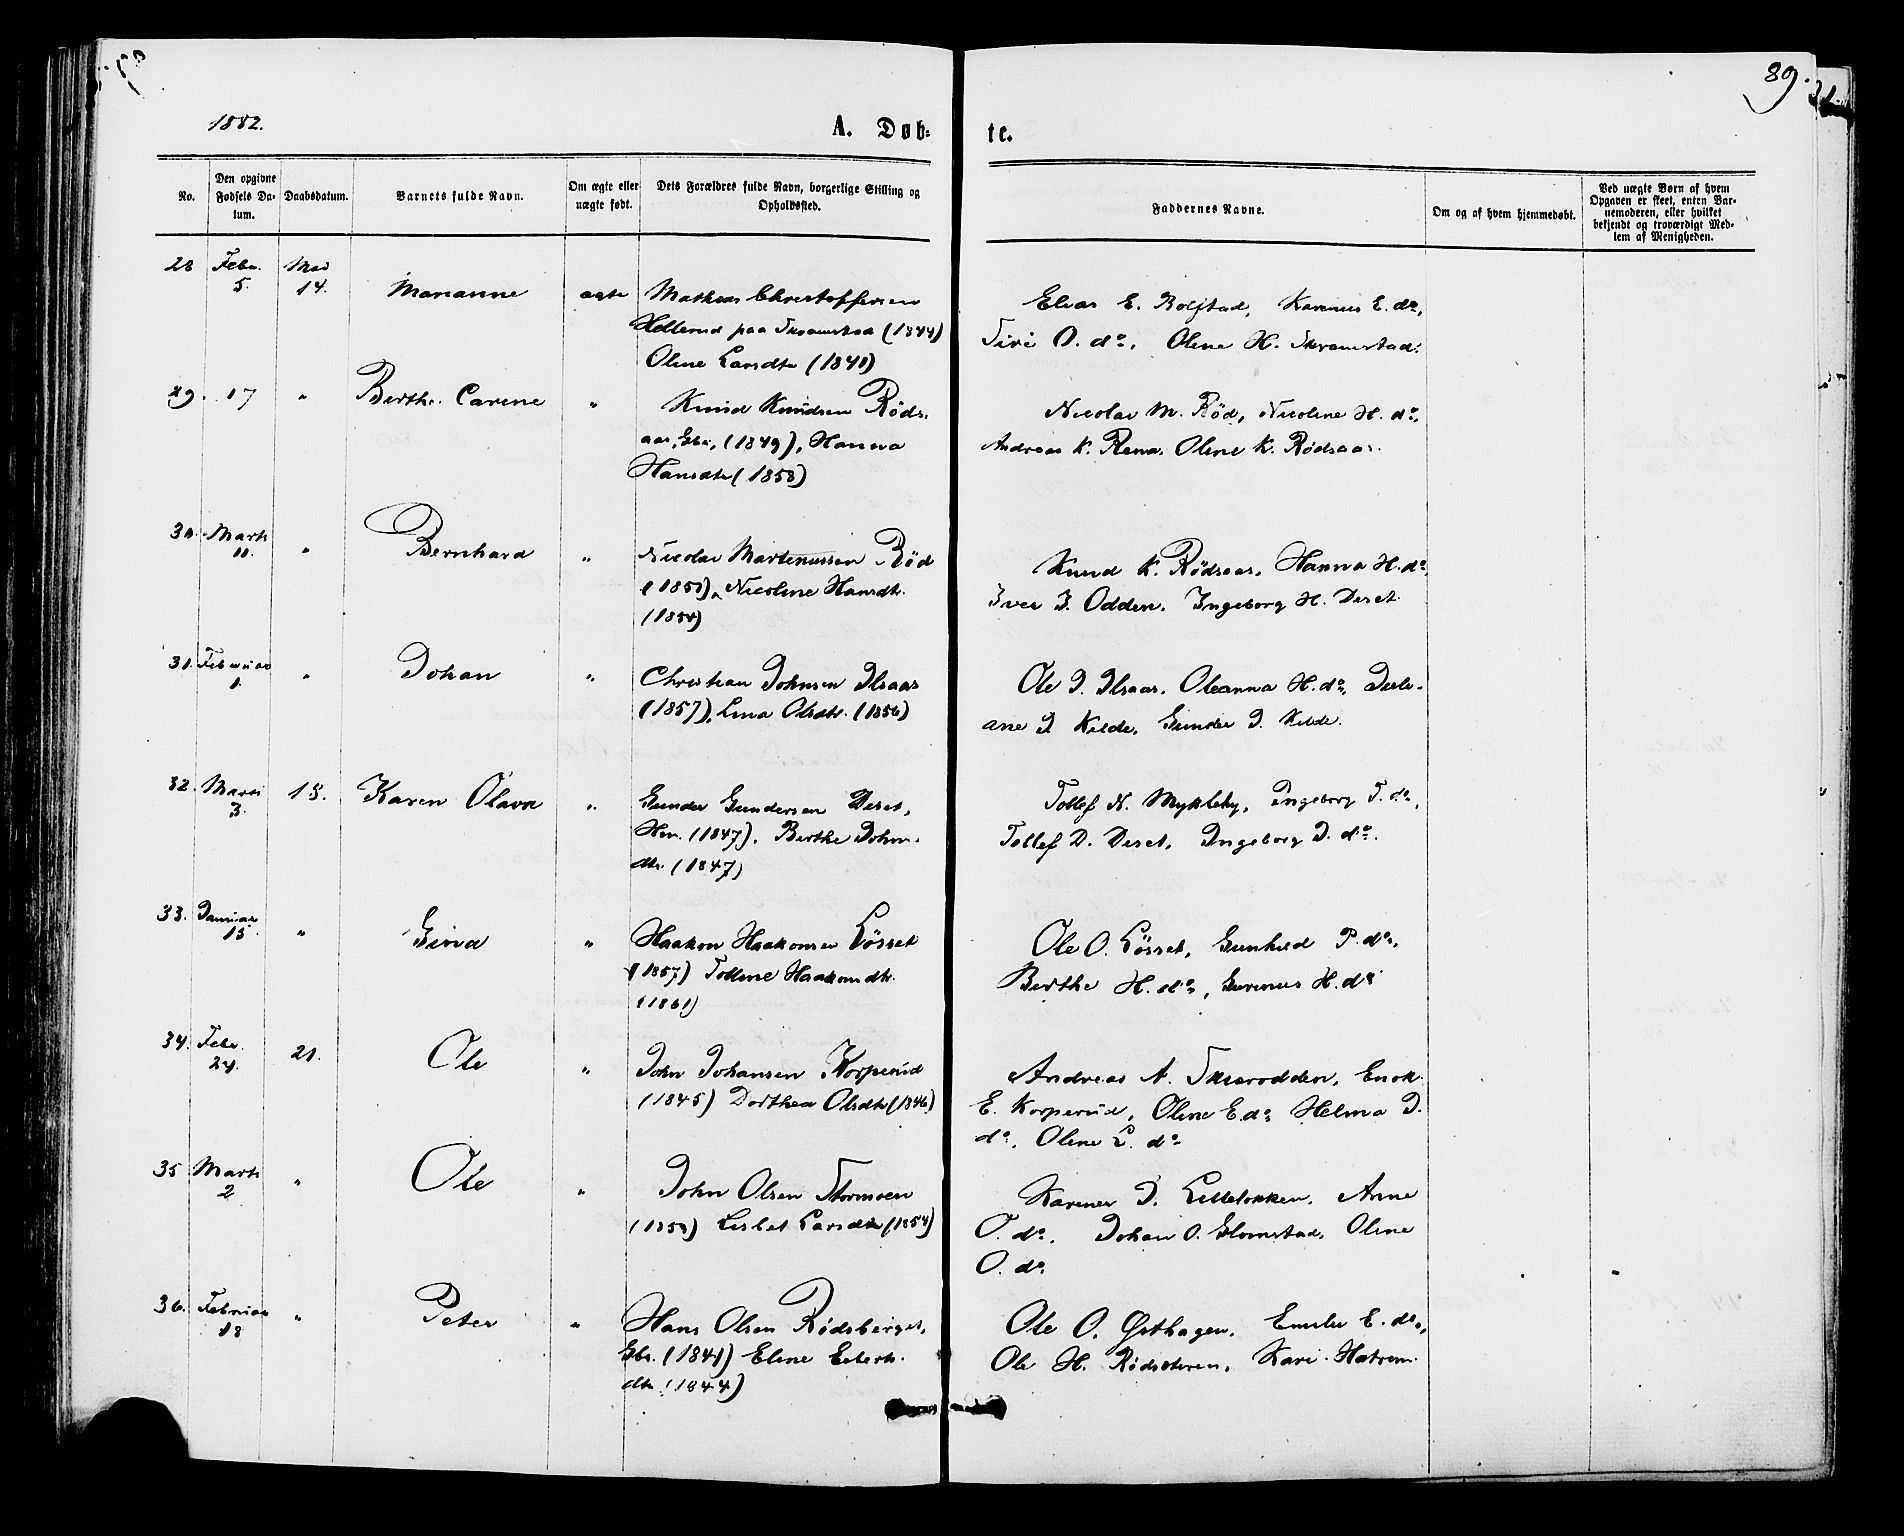 89.
1882.
A. Døb-
te.
No.
Den opgivne Fødsels Da-
tum.
Daabsdatum.
Barnets fulde Navn.
Om ægte eller
uægte født.
Dets Forældres fulde Navn, borgerlige Stilling og
Opholdssted.
Faddernes Navne.
Om og af hvem hjemmedøbt.
Ved uægte Børn af hvem
Opgaven er skeet, enten Bar-
nemoderen, eller hvilket
bekjendt og troværdigt Med-
lem af Menigheden.
28 Febr. 5. Mai 14. Marianne ægte Mathias Christoffersen
Hellerud paa (1844)
Oline Larsdtr (1840)
Elias E. Bolstad, Karenus E. do,
Siri O. do. Oline H.
29. 17 " Berthe Carine " Knud Knudsen Røds-
aas, Gbr, (1849), Hanna
Hansdtr (1858)
Nicolai M. Rød, Nicoline H. do,
Andreas K. Rena. Oline K. Rødsaas.
30. Marts 11. " Bernhard " Nicolai Martinussen Rød
(1850), Nicoline Hansdtr.
(1854)
Knud K. Rødsaas, Hanna H. do,
Iver I. Odden. Ingeborg H. Deset.
31. Februar 1. " Johan " Christian Johnsen Ilsaas
(1857), Lina Olsdtr. (1856)
Ole J. Ilsaas. Oleanna H. do,
ane J. Kilde, Gunder J. Kilde.
32. Marts 3. 18. Karen Olava " Gunder Gundersen Deset,
(1847). Berthe Johns-
dtr. (1847)
Tollef N. Mykleby, Ingeborg T. do,
Tollef D. Deset, Ingeborg D. do.
33. Januar 15. " Gina " Haakon Haakonsen Løsset
(1857) Tolline Haakonsdtr.
(1861)
Ole O. Løsset, Gunhild P. do,
Berthe H. do, H. do
34. Febr. 24. 21. Ole " John Johansen Korperud
(1845) Dorthea Olsdtr (1846)
Andreas A. Skjærodden, Enok
E. Korperud, Oline E. do, Helma J.
do, Oline L. do
35 Marts 2 " Ole " John Olsen Stormoen
(1850) Lisbet Larsdtr (1854)
J. Lilleløkken, Anne
O. do, Johan O. Glomstad, Oline
O. do.
36. Februar 18 " Peter " Hans Olsen Rødsberget,
Gbr. (1841) Eline
dtr (1844)
Ole O. Østhagen, E. do,
Ole H. Rødsæteren, Kari